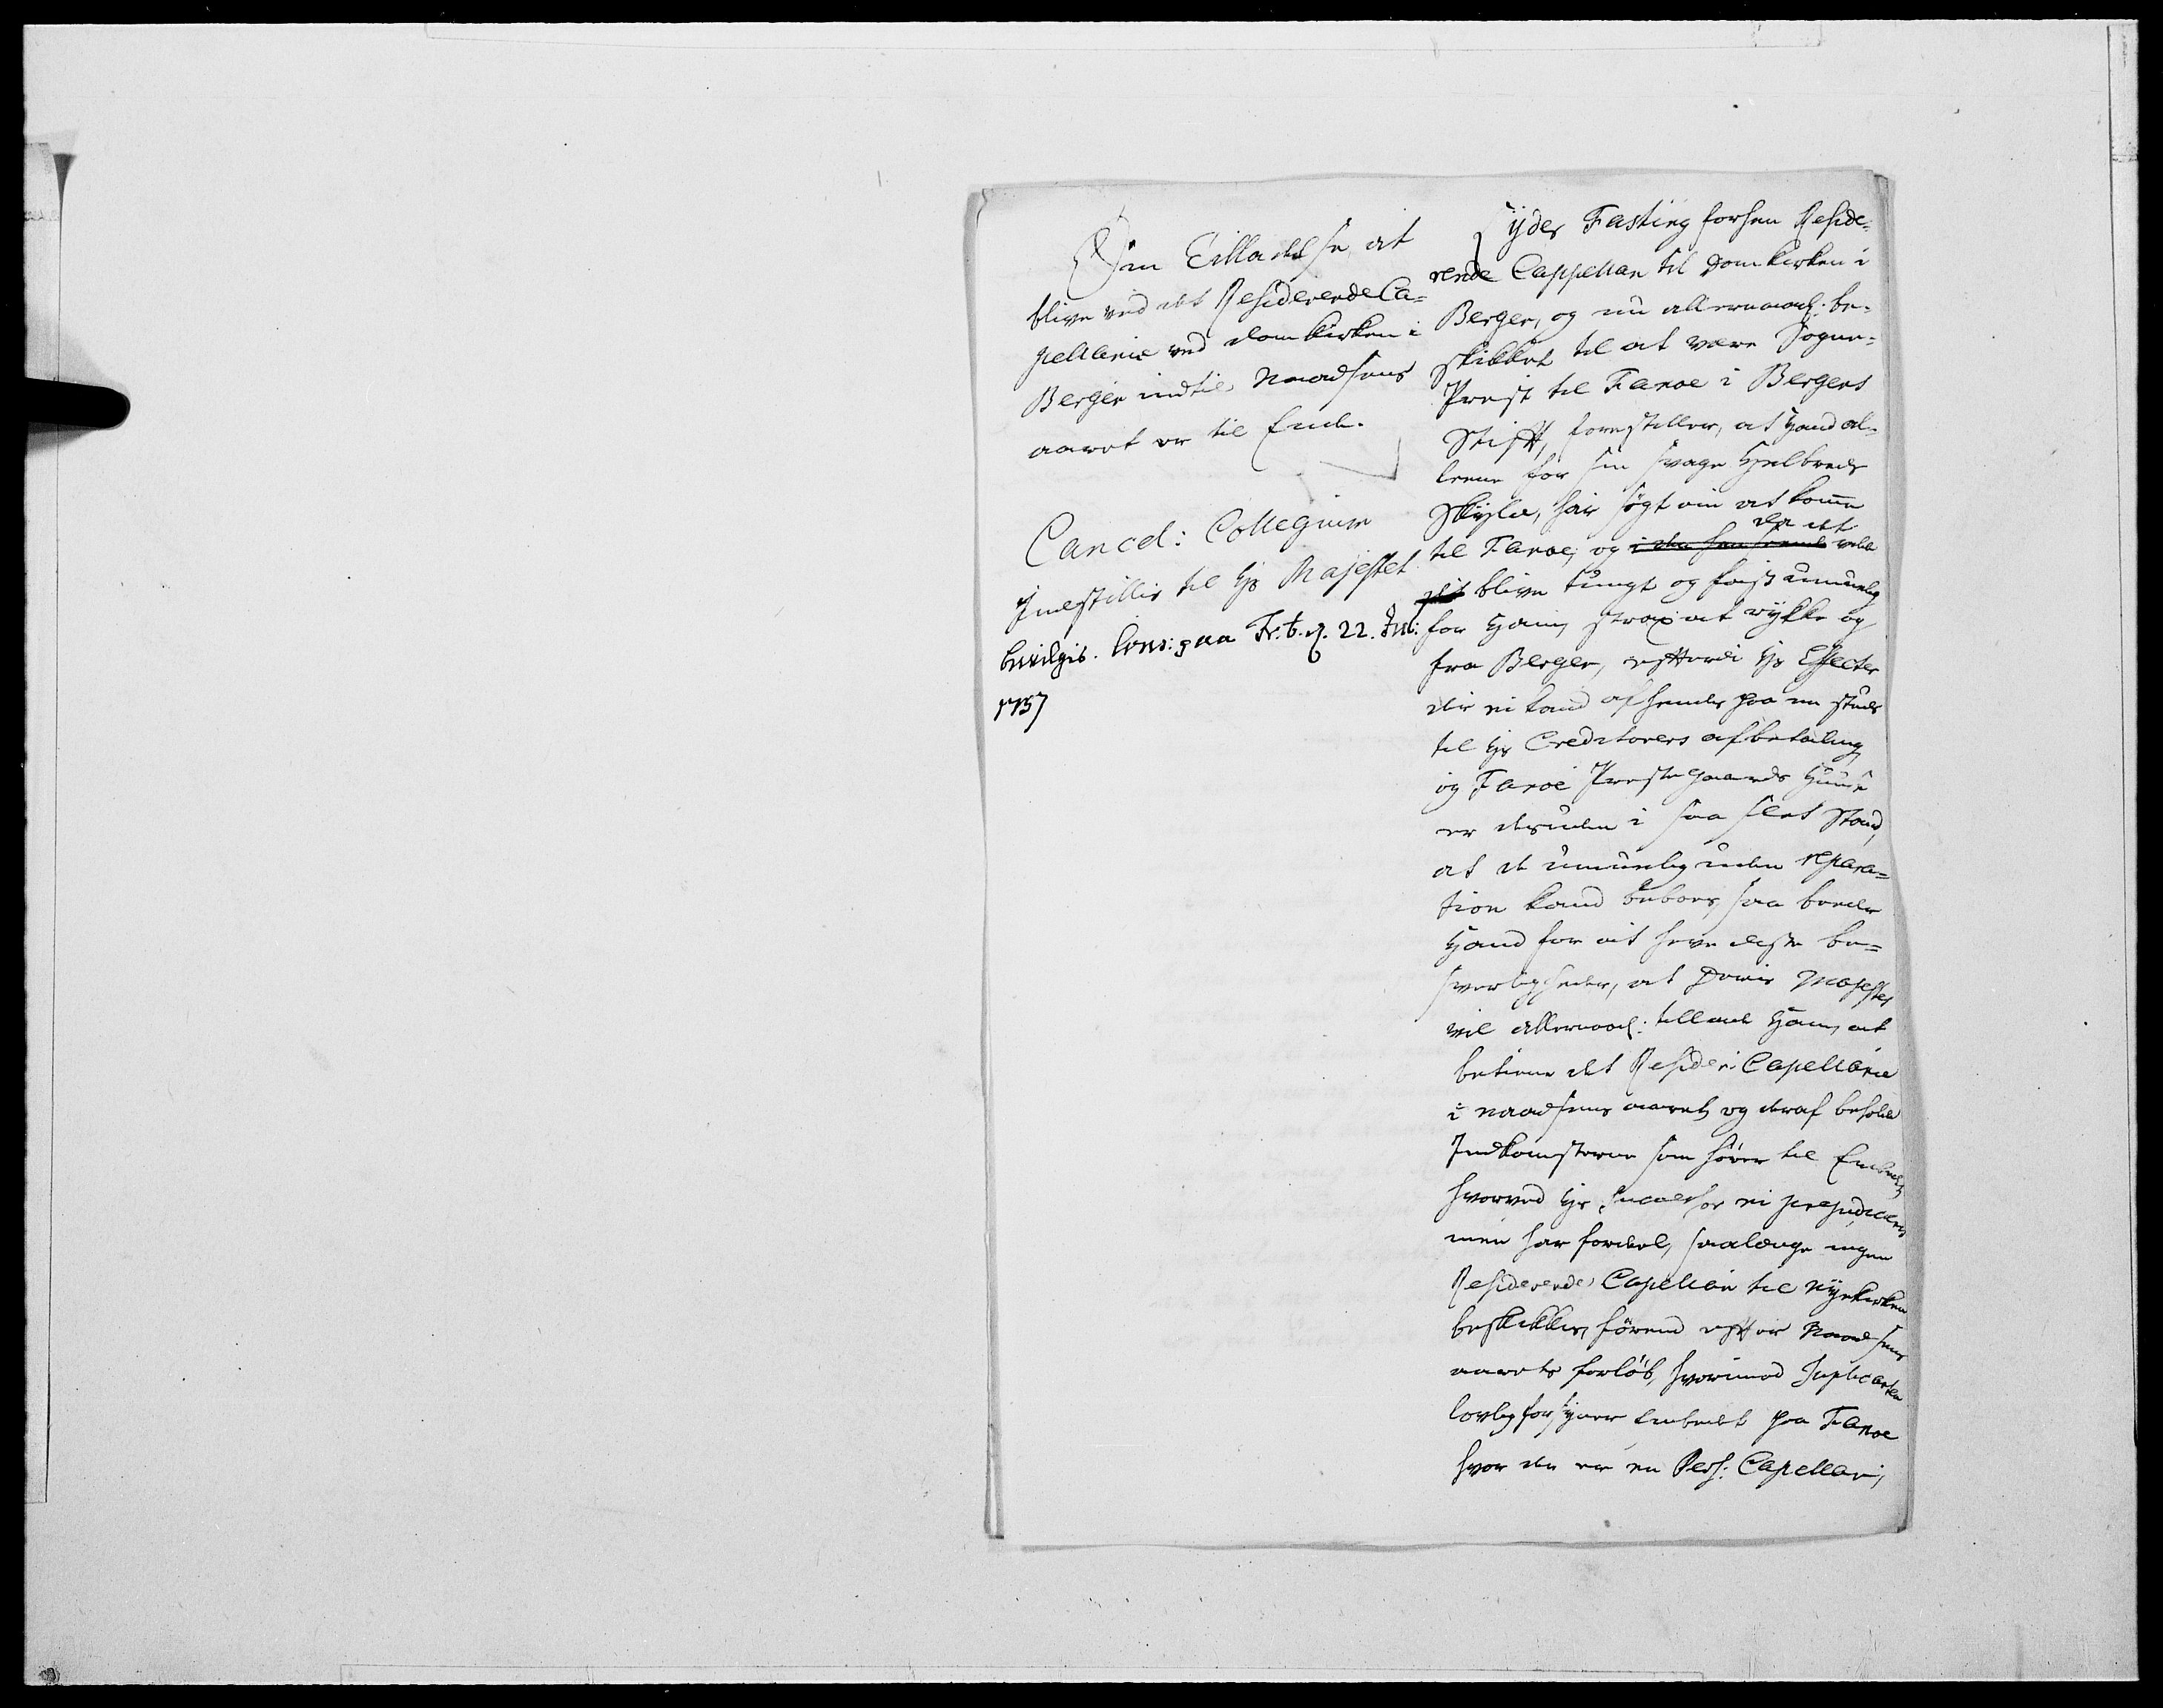 Om Tilladelse, at
blive ved det Residerende Ca=
pellanie ved Domkirken i
Bergen indtil Naadsens
aaret er til Ende.
Cancel: Collegium
Indstillis til Hs Majestet
bevilgis. Cons: paa Fr.b. d. 22. Jul:
1737
Lyder Fasting forhen Reside=
rende Cappellan til Domkirken i
Bergen, og nu allernaad: be=
skikket til at være Sogne=
Præst til Fanoe i Bergens
Stift, forestiller, at Hand al=
leene for sin svage Helbreds
Skyld, har søgt om at komme
til Fanoe, og da det vil
blive tungt og faist umuelig
for Ham, strax at rykke op
fra Bergen, efterdi Hs Effecter
der ei kand afhendes paa en stund
til Hs Creditorers afbetaling
og Fanoe Præstegaards Huuse
er desuden i saa slet Stand,
at de umuelig uden repara=
tion kand beboes, saa beeder
Hand for at heve disse be=
sverligheder, at Deris Majestet
vil allernaad: tillade Ham, at
betiene det Resider: Capellanie
i Naadsens aaret, og deraf beholde
Indkomsterne som hører til Embedet,
hvorved Hs Successor ei præjudiceris
men har fordeel, saalænge ingen
Residerende Capellan til Nyekirken
beskikkes, førend efter Naadsens
aarets forløb, hvorimod Suplicanten
lovlig forsyner Embedet paa Fanoe
hvor der er en Pers: Capellan,